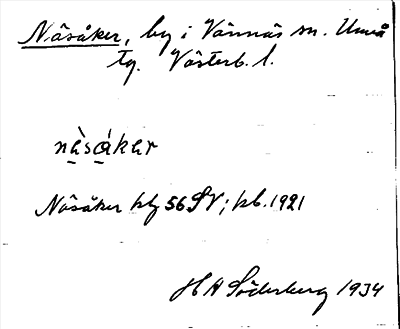 Näsåker, by i Vännäs sn. Umeå
tg. Västerb. l.
nä̀såkər
Näsåker kbl 56 SV; kb. 1921
H A Söderberg 1934